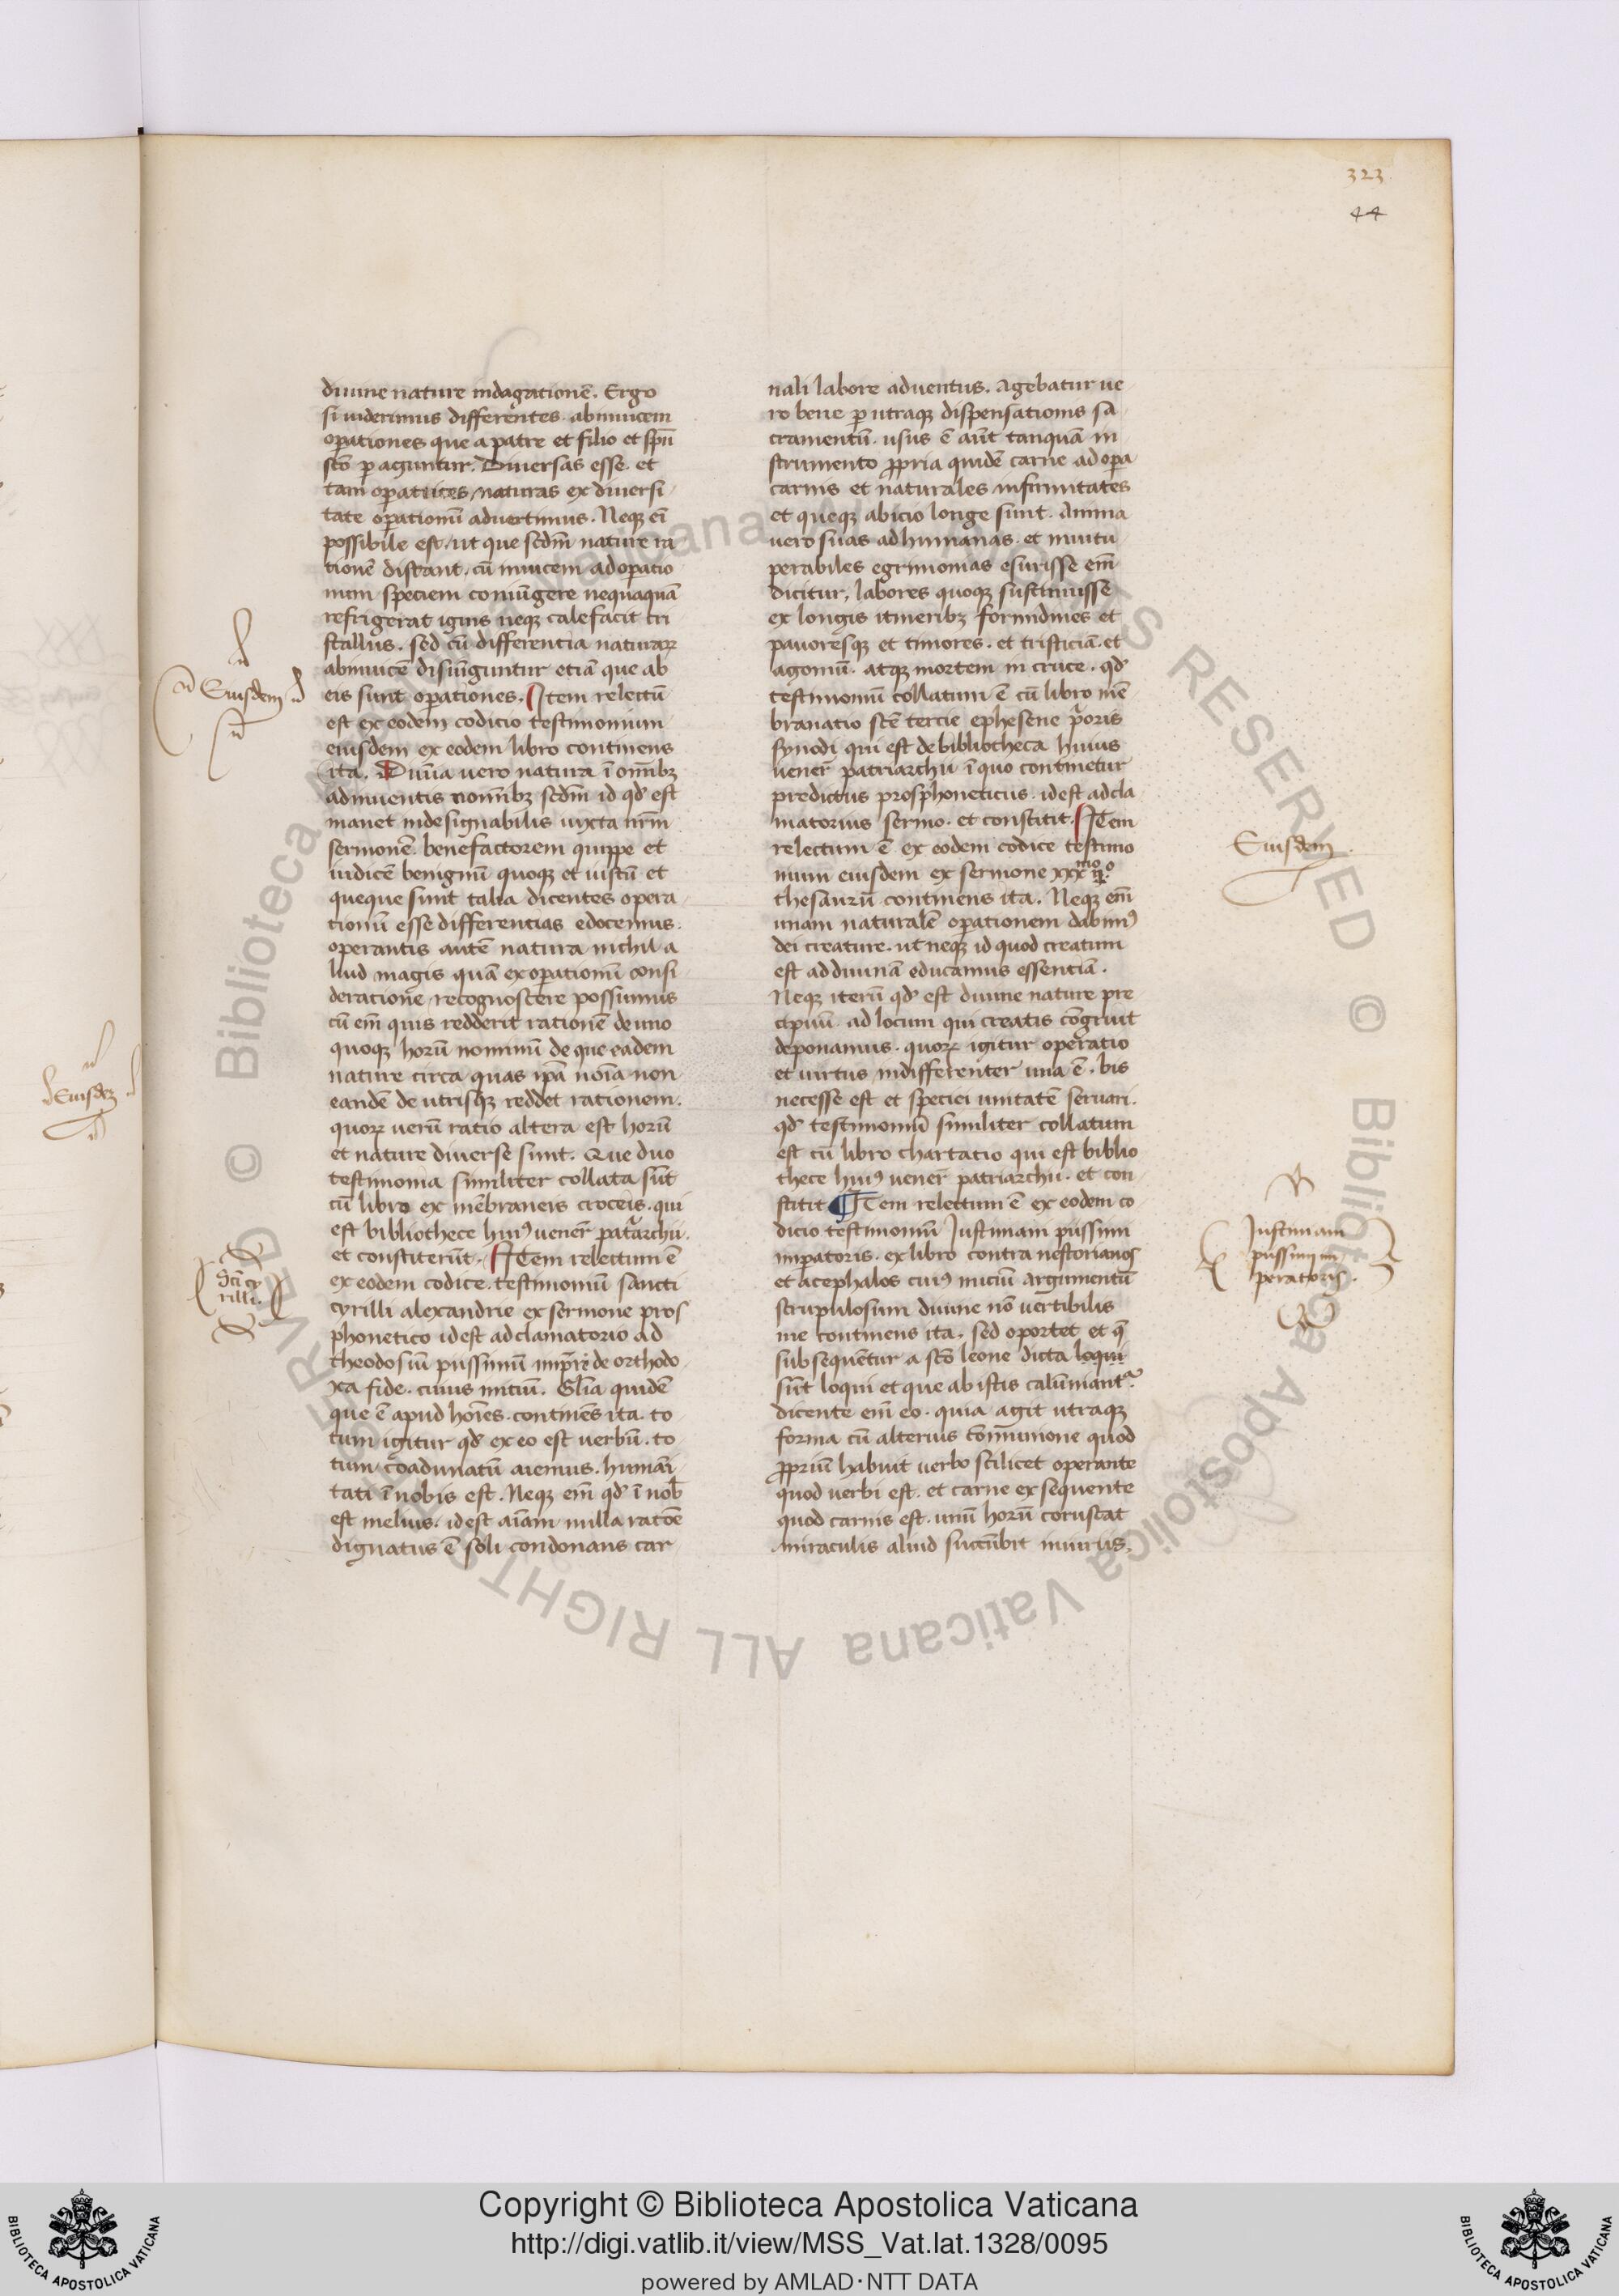 323
44
diuine nature indagationē. Ergo
si uiderimus differentes abinuicem
oꝑationes que a patre et filio et spū
sc̄o ꝑaguntur. Diuersas esse et
tam oꝑatrices naturas ex diuersi
tate oꝑationū aduertimus. Neqꝫ ei
possibile est ut que scdm̄ nature ra
tionē distant cū inuicem ad oꝑatio
num speciem coniūgere nequaquā
refrigerat ignis neqꝫ calefacit cri
stallus. sed cū differentia naturaꝝ
abinuicē disiūguntur etiā que ab
eis sunt oꝑationes. Item relectū
est ex eodem codicio testimonium
eiusdem ex eodem libro continens
ita. Diuīa uero natura ī om̄ibꝫ
adinuentis nom̄ibꝫ scdm̄ id qđ est
manet indesignabilis iuxta nr̄m
sermonē benefactorem quippe et
iudicē benignū quoqꝫ et iustū et
queque sunt talia dicentes opera
tionū esse differentias edocemus.
operantis autē natura nichil a
liud magis quā ex oꝑationū consi
deratione recognoscere possumus
cū em̄ quis redderit rationē de uno
quoqꝫ horū nominū de que eadem
nature circa quas ip̄a noīa non
eandē de utrisqꝫ reddet rationem.
quoꝝ uerū ratio altera est horū
et nature diuerse sunt. Que duo
testimonia similiter collata sūt
cū libro ex mēbraneis croceis. qui
est bibliothece huiꝰ uener̄ patriarchii.
et constiterūt. Item relectum ē
ex eodem codice testimoniū sancti
cyrilli alexandrie ex sermone pros
phonetico id est adclamatorio ad
theodosiū piissimū imp̄re de orthodo
xa fide. cuius initiū. Gl̄ia quidē
que ē apud hoīes. continēs ita. to
tum igitur qđ ex eo est uerbū. to
tum coadunatū aiemus. humāi
tati ī nobis est. Neqꝫ em̄ qđ ī nob̄
est melius. id est aīam nulla ratōe
dignatus ē soli condonans car
nali labore aduentus. Agebatur ue
ro bene ꝑ utraqꝫ dispensationis sa
cramentū. usus ē aūt tanquā in
strumento ꝓpria quidē carne ad oꝑa
carnis et naturales infirmitates
et queqꝫ a bicio longe sunt. Anima
uero suas ad humanas et inuitu
perabiles egrimonias esurisse em̄
dicitur, labores quoqꝫ sustinuisse
ex longis itineribꝫ formidines et
pauoresqꝫ et timores. et tristiciā. et
agoniū. atqꝫ mortem in cruce. qđ
testimoniū collatum ē cū libro mē
branatio sc̄e tercie ephesene prioris
synodi qui est de bibliotheca huius
uener̄ patriarchii ī quo continetur
predictus prosphoneticus. id est adcla
matorius sermo. et constitit. Item
relectum ē ex eodem codice testimo
nium eiusdem ex sermone xxx ij
thesaurū continens ita. Neqꝫ em̄
unam naturalē oꝑationem dabimꝰ
dei creature. ut neqꝫ id quod creatum
est ad diuinā educamus essentiā.
Neqꝫ iterū qđ est diuine nature pre
cipuū ad locum qui creatis cōgruit
deponamus. quoꝝ igitur operatio
et uirtus indifferenter una ē. bis
necesse est et speciei unitatē seruari.
qđ testimoniū similiter collatum
est cū libro chartatio qui est biblio
thece huiꝰ uener̄ patriarchii. et con
stitit ¶ Item relectum ē ex eodem co
dicio testimoniū Justiniani piissimi
imꝑatoris. ex libro contra nestorianos
et acephalos cuiꝰ iniciū argumentū
scrupulosum diuine nō uertibilis
ine continens ita. sed oportet et q̄
subsequētur a sc̄o leone dicta loqui
sūt loqui et que ab istis calūniantᷣ.
dicente em̄ eo. quia agit utraqꝫ
forma cū alterius cōmunione quod
ꝓpriū habuit uerbo scilicet operante
quod uerbi est. et carne exsequente
quod carnis est. unū horū coruscat
miraculis aliud succūbit iniuriis.
Eiusdem
Eiusdꝫ
Sc̄i cy
rilli.
Eiusdem
Justiniani
piissimi im
peratoris.
Copyright © Biblioteca Apostolica Vaticana
http://digi.vatlib.it/view/MSS_Vat.lat.1328/0095
powered by AMLAD·NTT DATA
BIBLIOTECA APOSTOLICA VATICANA
BIBLIOTECA APOSTOLICA VATICANA